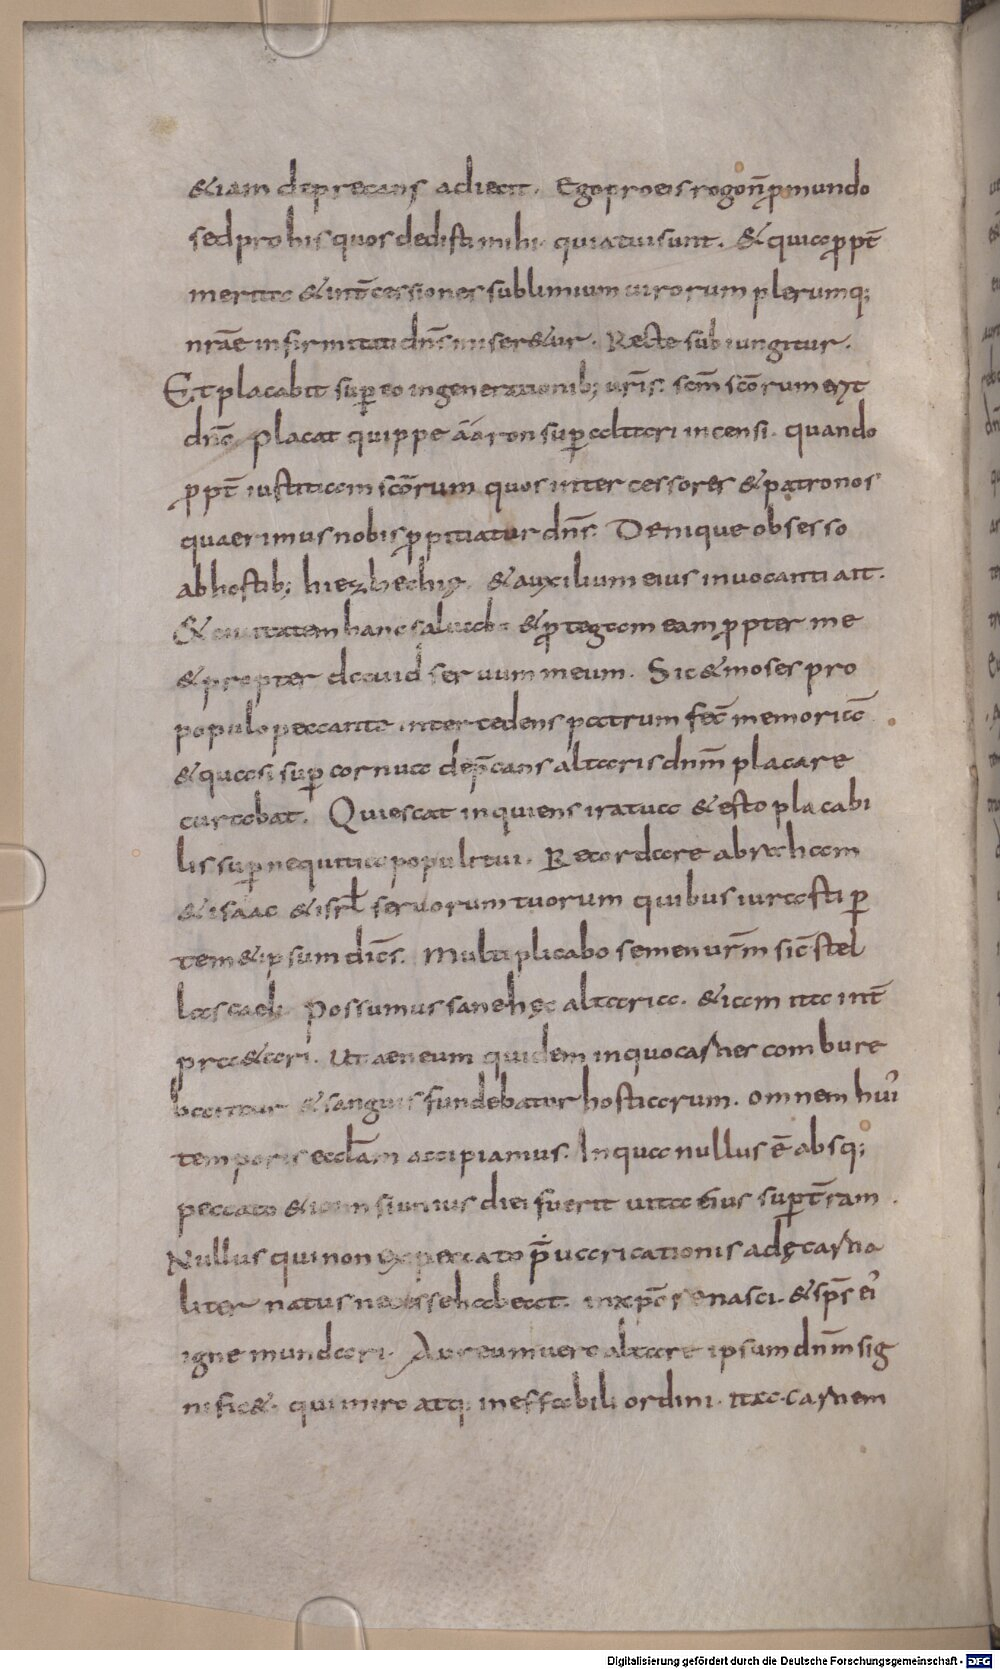 &iam deprecans adiecit. Ego pro eis rogo n̄ ꝓ mundo
sed pro his quos dedisti mihi. quia tui sunt. & quia ꝓpt̄
merita & int̄cessiones sublimium uirorum plerumq;
nr̄ae infirmitati dn̄s miser&ur. Recte subiungitur.
Et placabit suꝑ eo in generationib; ur̄is. scm̄ scōrum erit
dnō. Placat quippe aaron suꝑ altari incensi. quando
ꝓpt̄ iustitiam scōrum quos intercessores & patronos
quaerimus nobis ꝓpitiatur dn̄s. Denique obsesso
ab hostib; hiezhechia. & auxilium eius inuocanti ait.
& ciuitatem hanc saluabo & ꝓtegam eam ꝓpter me
& propter dauid seruum meum. Sic & moses pro
populo peccante intercedens patrum fec̄ memoriā
& quasi suꝑ cornua dep̄cans altaris dnm̄ placare
curabat. Quiescat inquiens ira tua & esto placabi
lis suꝑ nequitia populi tui. Recordare abraham
& isaac & isrl̄ seruorum tuorum quibus iurasti ꝑ
tem&ipsum dicēs. Multiplicabo semen ur̄m sic̄ stel
las caeli. Possumus sane hęc altaria. &iam ita int̄
pr&ari. Ut aeneum quidem in quo carnes combure
bantur & sanguis fundebatur hostiarum. omnem hui᾽
temporis eccl̄am accipiamus. In qua nullus ē absq;
peccato &iam si unius diei fuerit uita eius suꝑ t̄ram.
Nullus qui non ex peccato p̄uaricationis adę carna
liter natus necesse habeat. in xpō renasci. & sp̄s ei᾽
igne mundari. Aureum uero altare ipsum dnm̄ sig
nific&. qui miro atq. ineffabili ordini. ita carnem
Digitalisierung gefördert durch die Deutsche Forschungsgemeinschaft - DFG